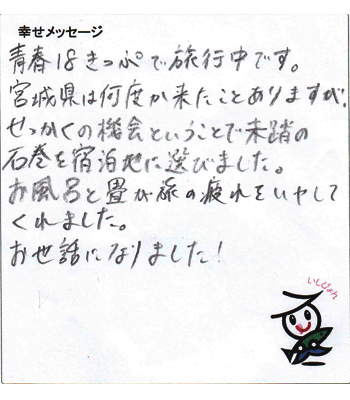 幸せメッセージ
青春18きっぷで旅行中です。
宮城県は何度か来たことありますが、
せっかくの機会ということで未踏の
石巻を宿泊地に選びました。
お風呂と畳が旅の疲れをいやして
くれました。
お世話になりました!
いしぴょん